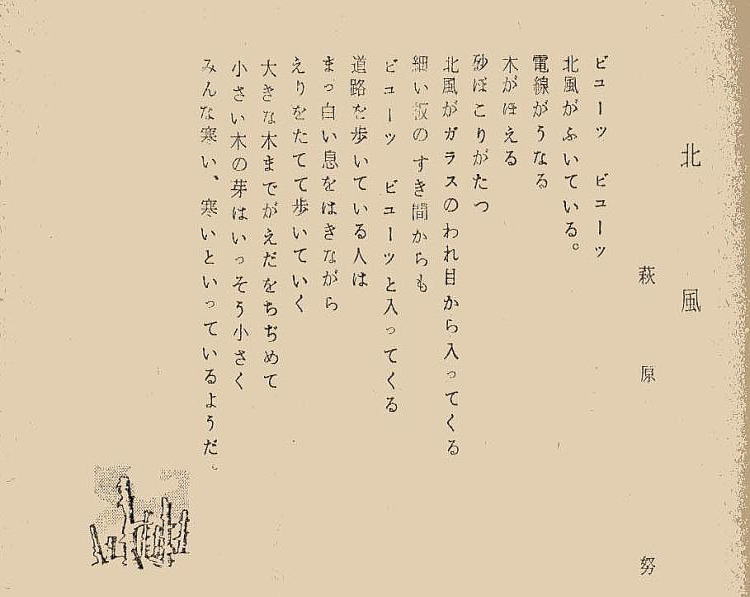 北風
萩原 努
ビューツ ビューツ
北風がふいている。
電線がうなる
木がほえる
砂ぼこりがたつ
北風がガラスのわれ目から入ってくる
細い板のすき間からも
ビューツ ビューツと入ってくる
道路を歩いている人は
まっ白い息をはきながら
えりをたてて歩いていく
大きな木までがえだをちぢめて
小さい木の芽はいっそう小さく
みんな寒い、寒いといっているようだ。